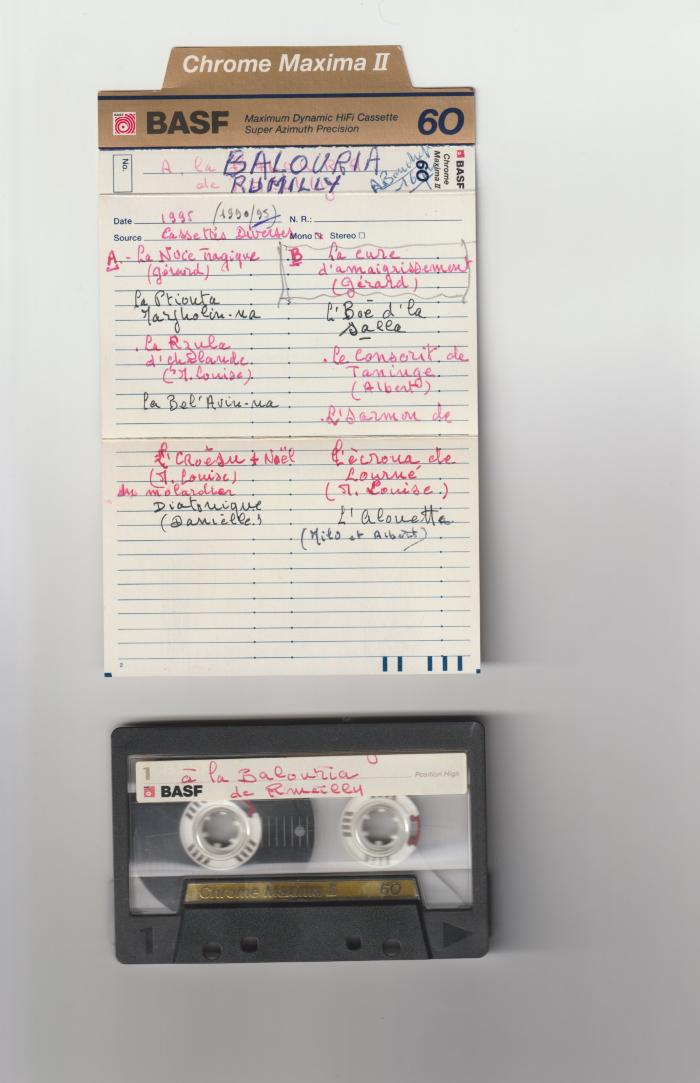 Chrome Maxima II
BASF
Maximum Dynamic HiFi Cassette
Super Azimuth Precision
60
No.
A. la BALOURIA
de RUMILLY
A Bouchet
BASF
Chrome
Maxima II
60
Date 1995 (1990/95) N. R.:
Source Cassettes Diverses Mono Stereo
A - La Noce tragique
(Gérard)
La Ptiouta
Margholin-na
. La Rzula
d'chalande.
(M. Louise)
La Bel'Avin-na
L'Croèju + Noël
(M. Louise)
du molardier
Diatonique
(Danielle)
B La cure
d'amaigrissement
(Gérard)
L'Boë d'la
Salla
. Le Conscrit de
Taninge
(Albert)
. L'sarmon de
L'ècroua de
Lourné
(M. Louise.)
L'Alouetta
(Milo et Albert)
2
1
à la Balouria
de Rmeilly
Position High
BASF
Chrome Maxima II 60
1